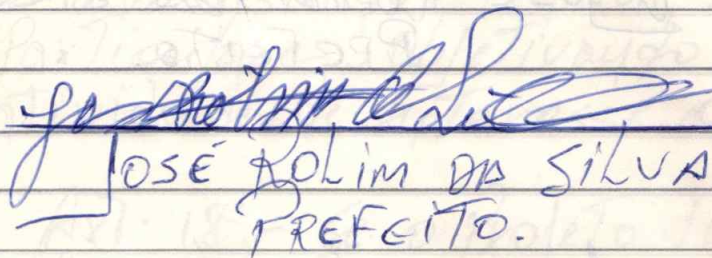 JOSÉ ROLIM DA SILVA
PREFEITO.